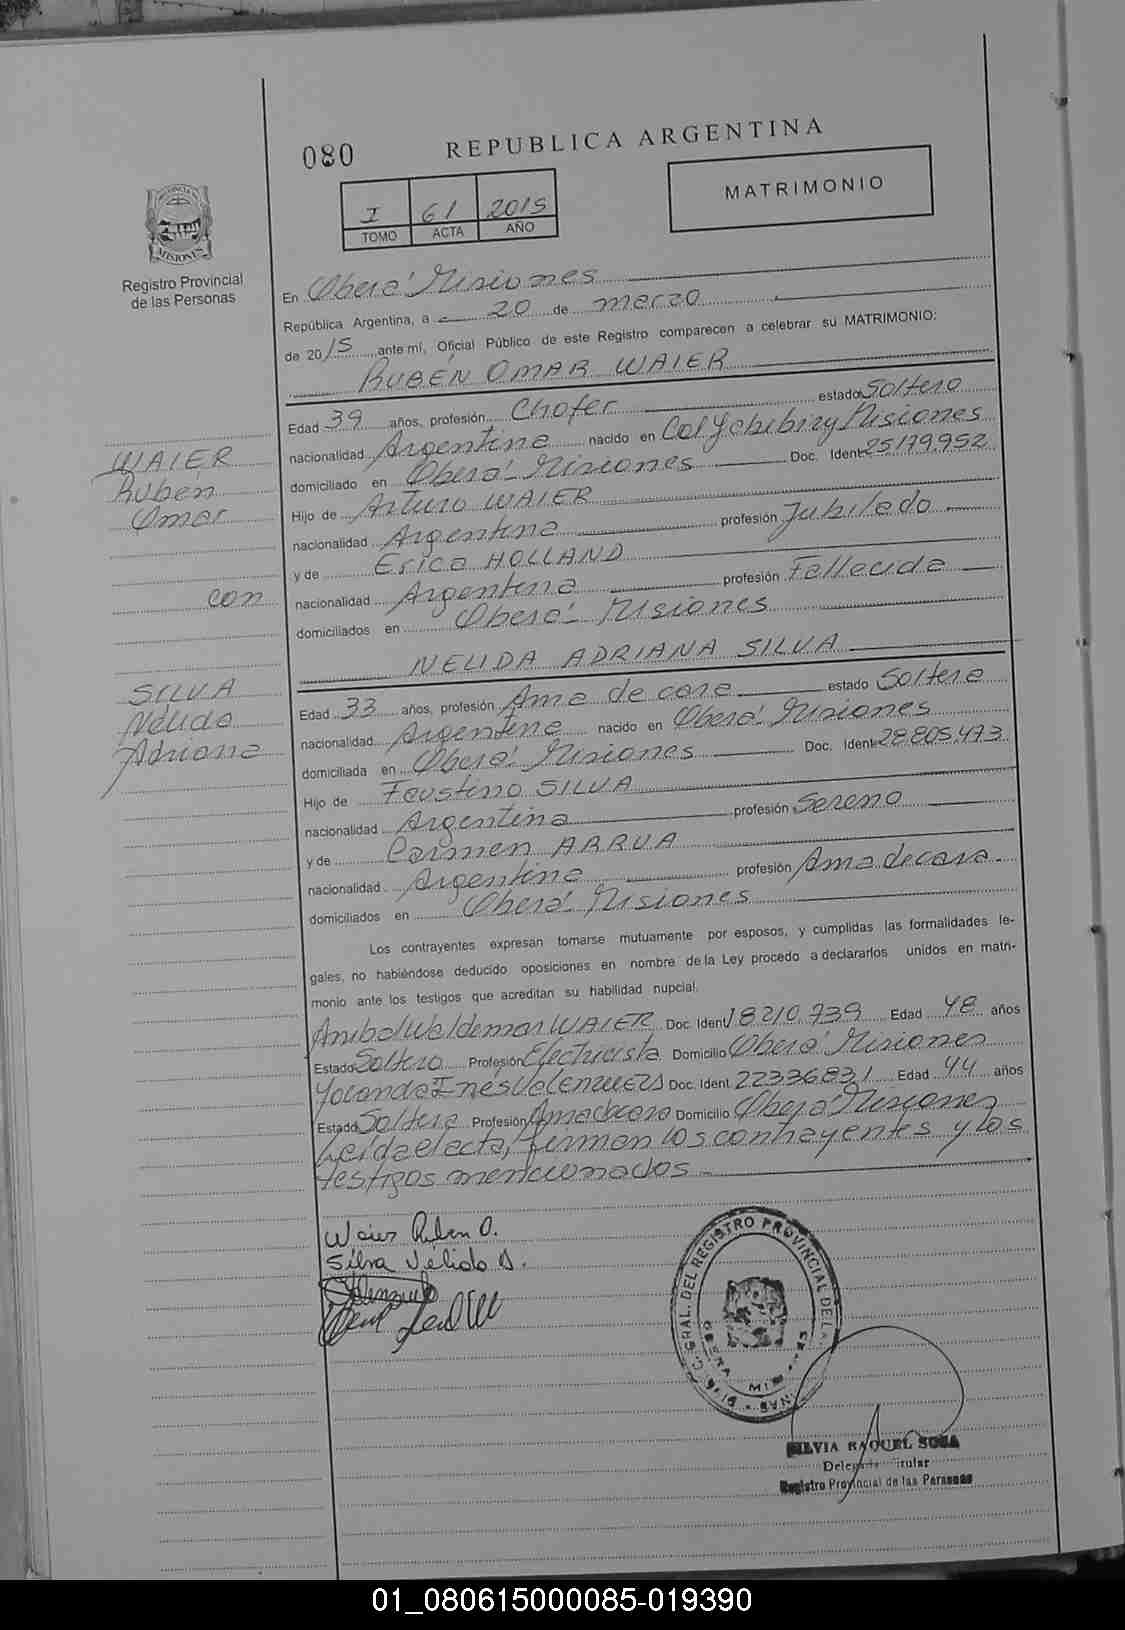 080
REPUBLICA ARGENTINA
MATRIMONIO
I 61 2015
TOMO ACTA AÑO
PROVINCIA
MISIONES
Registro Provincial
de las Personas
En Oberá Misiones
República Argentina, a 20 de marzo
de 2015 ante mí, Oficial Público de este Registro comparecen a celebrar su MATRIMONIO:
RUBÉN OMAR WAIER
Edad 39 años, profesión Chofer estado Soltero
nacionalidad Argentina nacido en Col Yabebiry Misiones
domiciliado en Oberá Misiones Doc. Ident 25179.952
Hijo de Arturo WAIER
nacionalidad Argentina profesión Jubilado
y de Erica HOLLAND
nacionalidad Argentina profesión Fallecida
domiciliados en Oberá Misiones
WAIER
Rubén
Omar
con
SILVA
Nélida
Adriana
NELIDA ADRIANA SILVA
Edad 33 años, profesión Ama de casa estado Soltera
nacionalidad Argentina nacido en Oberá Misiones
domiciliada en Oberá Misiones Doc. Ident 28.805.473
Hijo de Faustino SILVA
nacionalidad Argentina profesión Sereno
y de Carmen ARRUA
nacionalidad Argentina profesión Ama de casa
domiciliados en Oberá Misiones
Los contrayentes expresan tomarse mutuamente por esposos, y cumplidas las formalidades le-
gales, no habiéndose deducido oposiciones en nombre de la Ley procedo a declararlos unidos en matri-
monio ante los testigos que acreditan su habilidad nupcial.
Anibal Waldemar WAIER Doc. Ident 18210.739 Edad 48 años
Estado Soltero Profesión Electricista Domicilio Oberá Misiones
Yolanda Inés Valenzuela Doc. Ident 22336831 Edad 44 años
Estado Soltera Profesión Ama de casa Domicilio Oberá Misiones
Leída el acta, firman los contrayentes y los
testigos mencionados
Waier Ruben O.
Silva Nélida A.
GRAL. DEL REGISTRO PROVINCIAL DE LA
SILVIA RAQUEL SOSA
Delegada Titular
Registro Provincial de las Personas
01_080615000085-019390